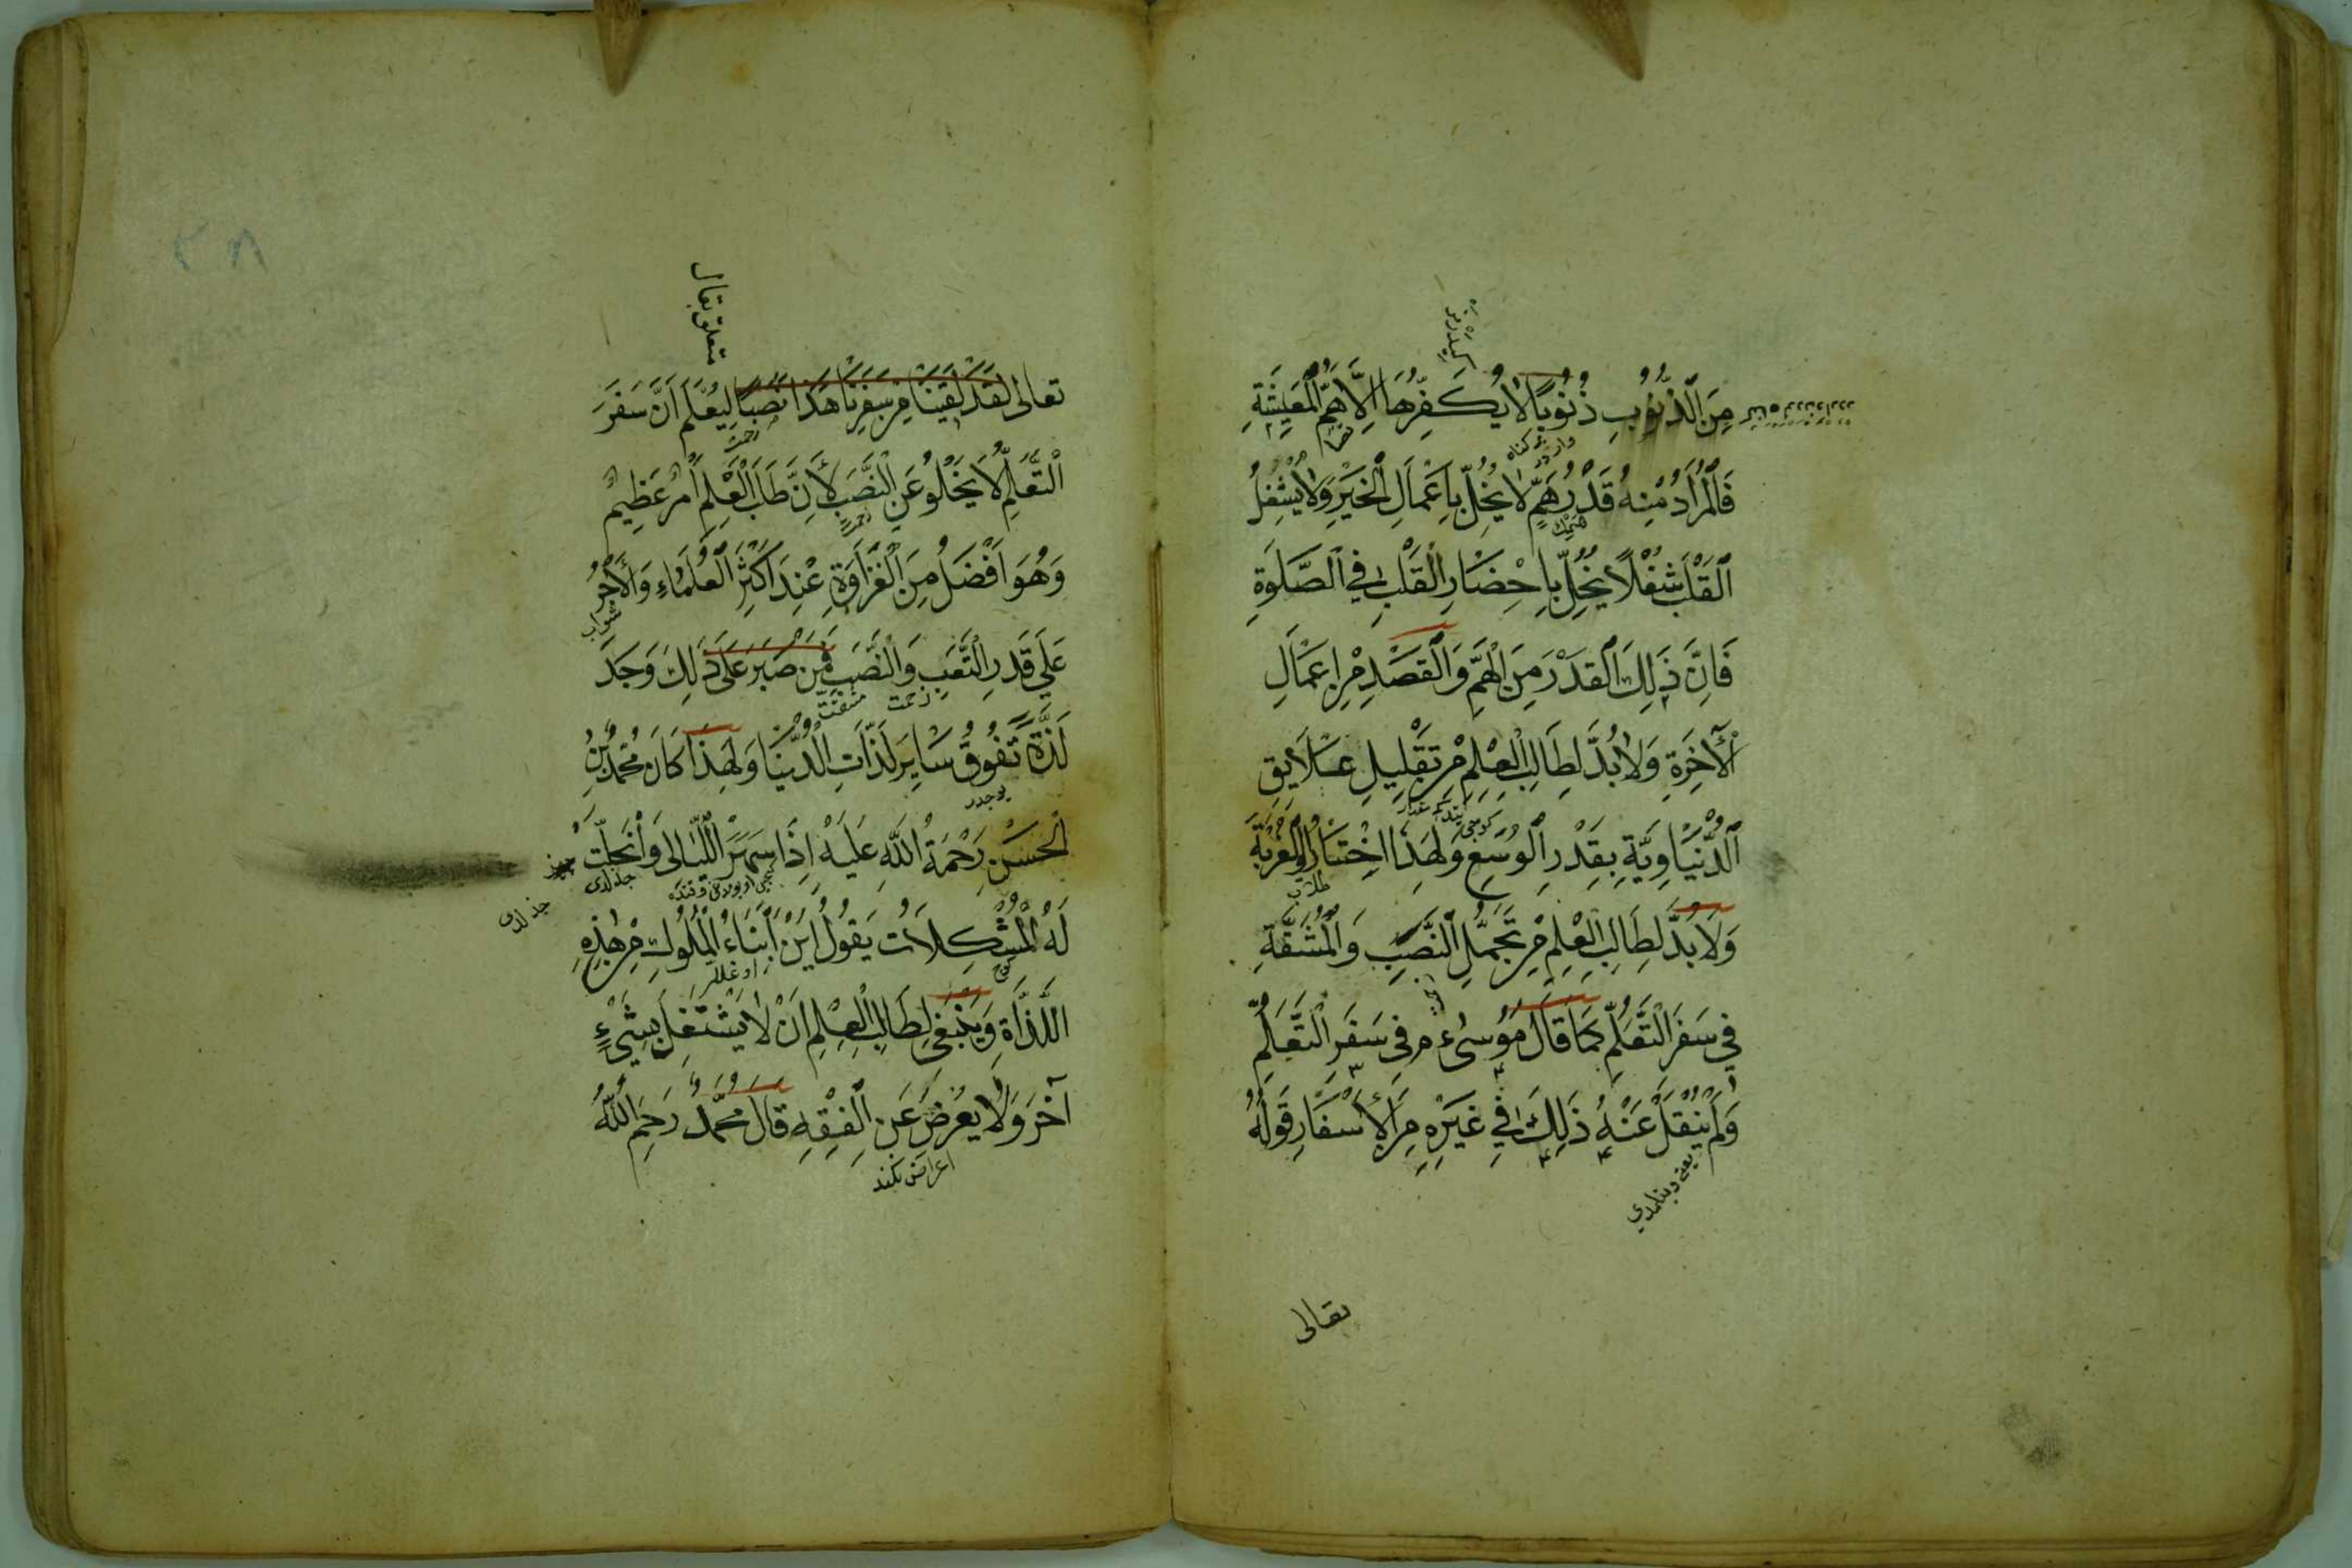 كيدرمز
مِنَ الذُّنُوبِ ذُنُوبًا لَا يُكَفِّرُهَا اِلَّا هَمُّ الْمَعِيشَةِ
فَالْمُرَادُ مِنْهُ قَدْرُ هَمٍّ لَا يُخِلُّ بِاَعْمَالِ الْخَيْرِ وَلَا يُشْغِلُ
الْقَلْبَ شُغْلًا يُخِلُّ بِاِحْضَارِ الْقَلْبِ فِي الصَّلَوةِ
فَاِنَّ ذَلِكَ الْقَدْرَ مِنَ الْهَمِّ وَالْقَصْدِ مِنْ اَعْمَالِ
الْآخِرَةِ وَلَا بُدَّ لِطَالِبِ الْعِلْمِ مِنْ تَقْلِيلِ عَلَايِقِ
الدُّنْيَاوِيَّةِ بِقَدْرِ الْوُسْعِ وَلِهَذَا اخْتَارُوا الْغُرْبَةَ
وَلَا بُدَّ لِطَالِبِ الْعِلْمِ مِنْ تَحَمُّلِ النَّصَبِ وَالْمَشَقَّةِ
فِي سَفَرِ التَّعَلُّمِ كَمَا قَالَ مُوسَى ع م فِي سَفَرِ التَّعَلُّمِ
وَلَمْ يُنْقَلْ عَنْهُ ذَلِكَ فِي غَيْرِهِ مِنَ الْاَسْفَارِ قَوْلُهُ
تعالى
٢٨
متعلق بقال
تعالى لَقَدْ لَقِينَا مِنْ سَفَرِنَا هَذَا نَصَبًا لِيُعْلَمَ اَنَّ سَفَرَ
زحمت
التَّعَلُّمِ لَا يَخْلُو عَنِ النَّصَبِ لِأَنَّ طَلَبَ الْعِلْمِ اَمْرٌ عَظِيمٌ
زحمت
وَهُوَ اَفْضَلُ مِنَ الْغَزَاوَةِ عِنْدَ اَكْثَرِ الْعُلَمَاءِ وَالْاَجْرُ
ثواب
عَلَى قَدْرِ التَّعَبِ وَالنَّصَبِ فَمَنْ صَبَرَ عَلَى ذَلِكَ وَجَدَ
زحمت مشقت
لَذَّةً تَفُوقُ سَايِرَ لَذَّاتِ الدُّنْيَا وَلِهَذَا كَانَ مُحَمَّدُ بْنُ
يوجدر
الْحَسَنِ رَحْمَةُ اللهِ عَلَيْهِ اِذَا سَهِرَ اللَّيَالِى وَانْحَلَّتْ
لَهُ الْمُشْكِلَاتُ يَقُولُ اَيْنَ اَبْنَاءُ الْمُلُوكِ مِنْ هَذِهِ
اوغللر
اللَّذَّاةِ وَيَنْبَغِى لِطَالِبِ الْعِلْمِ اَنْ لَا يَشْتَغِلَ بِشَيْءٍ
آخَرَ وَلَا يُعْرِضَ عَنِ الْفِقْهِ قَالَ مُحَمَّدٌ رَحِمَهُ اللهُ
اعراض نكند